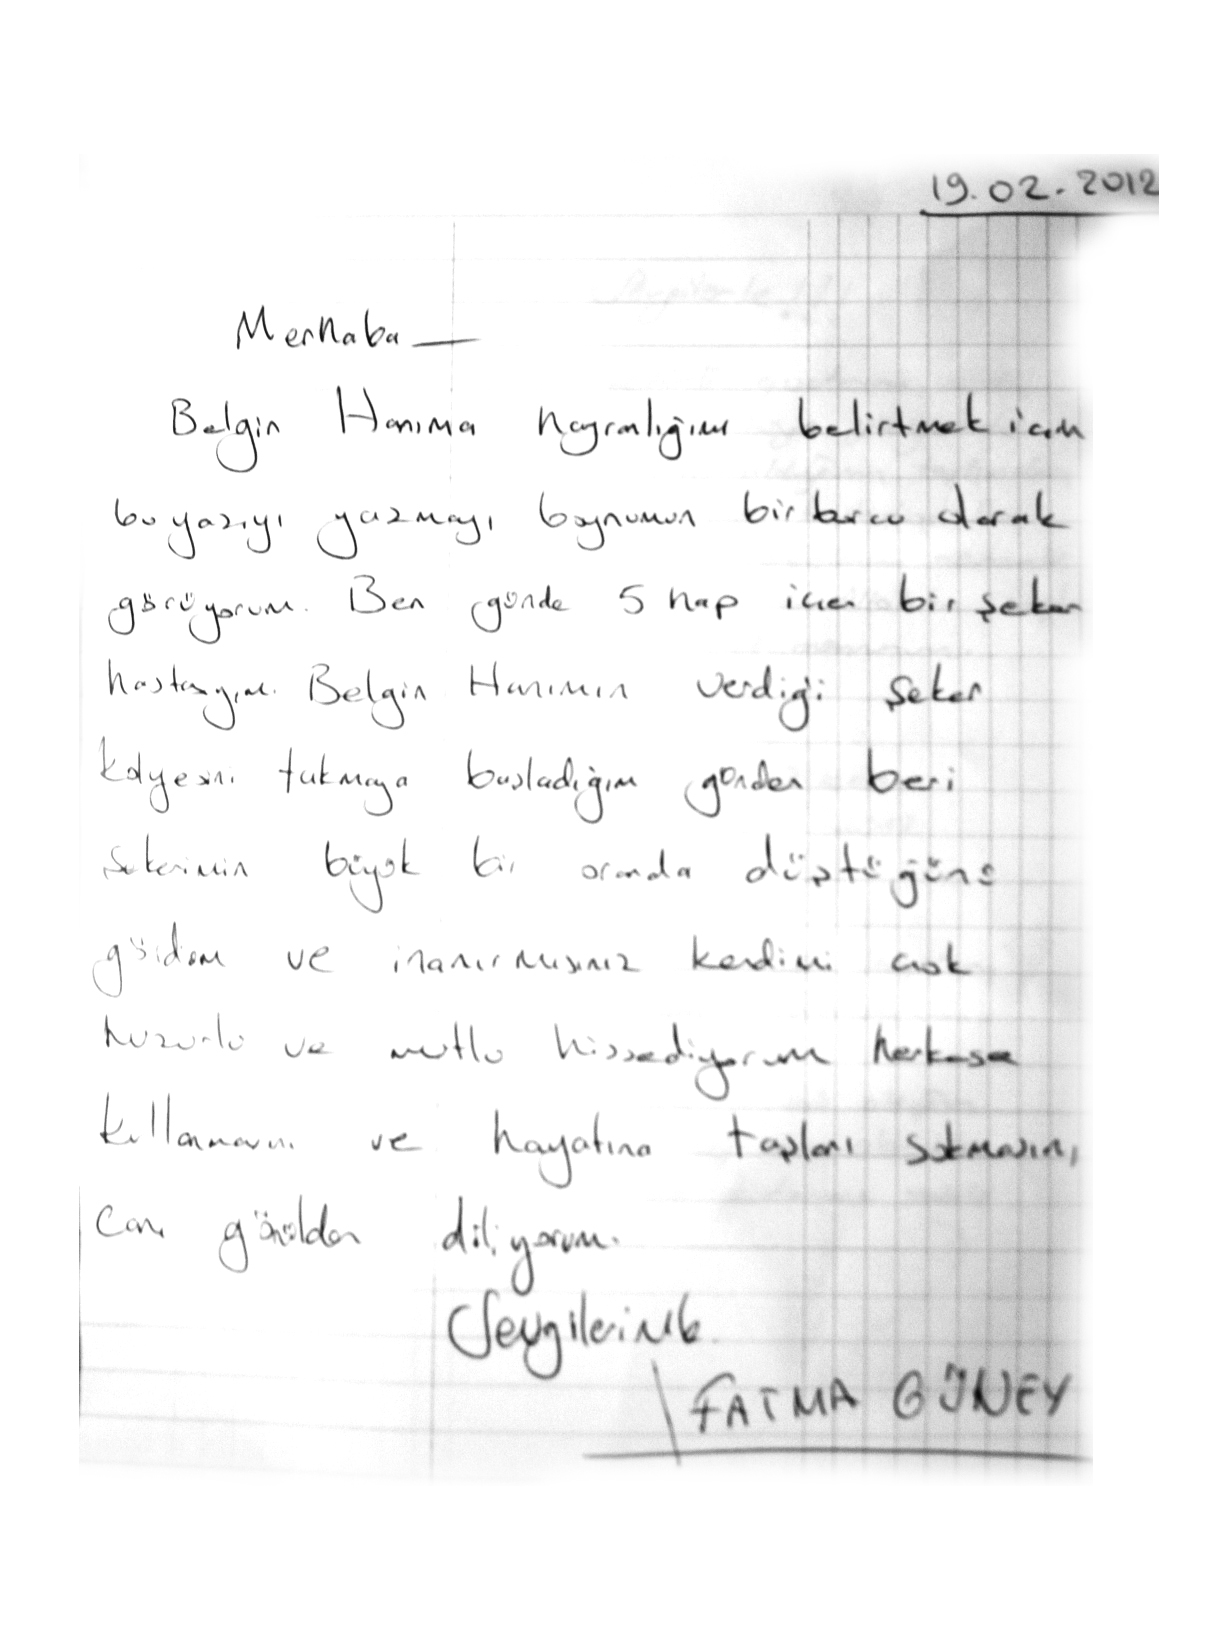 19.02.2012
Merhaba
Belgin Hanıma hayranlığımı belirtmek için
bu yazıyı yazmayı boynumun bir borcu olarak
görüyorum. Ben günde 5 hap içen bir şeker
hastasıyım. Belgin Hanımın verdiği şeker
kolyesini takmaya başladığım günden beri
şekerimin büyük bir oranda düştüğünü
gördüm ve inanırmısınız kendimi çok
huzurlu ve mutlu hissediyorum herkese
kullanmasını ve hayatına taşları sokmasını,
canı gönülden diliyorum.
Sevgilerimle.
FATMA GÜNEY